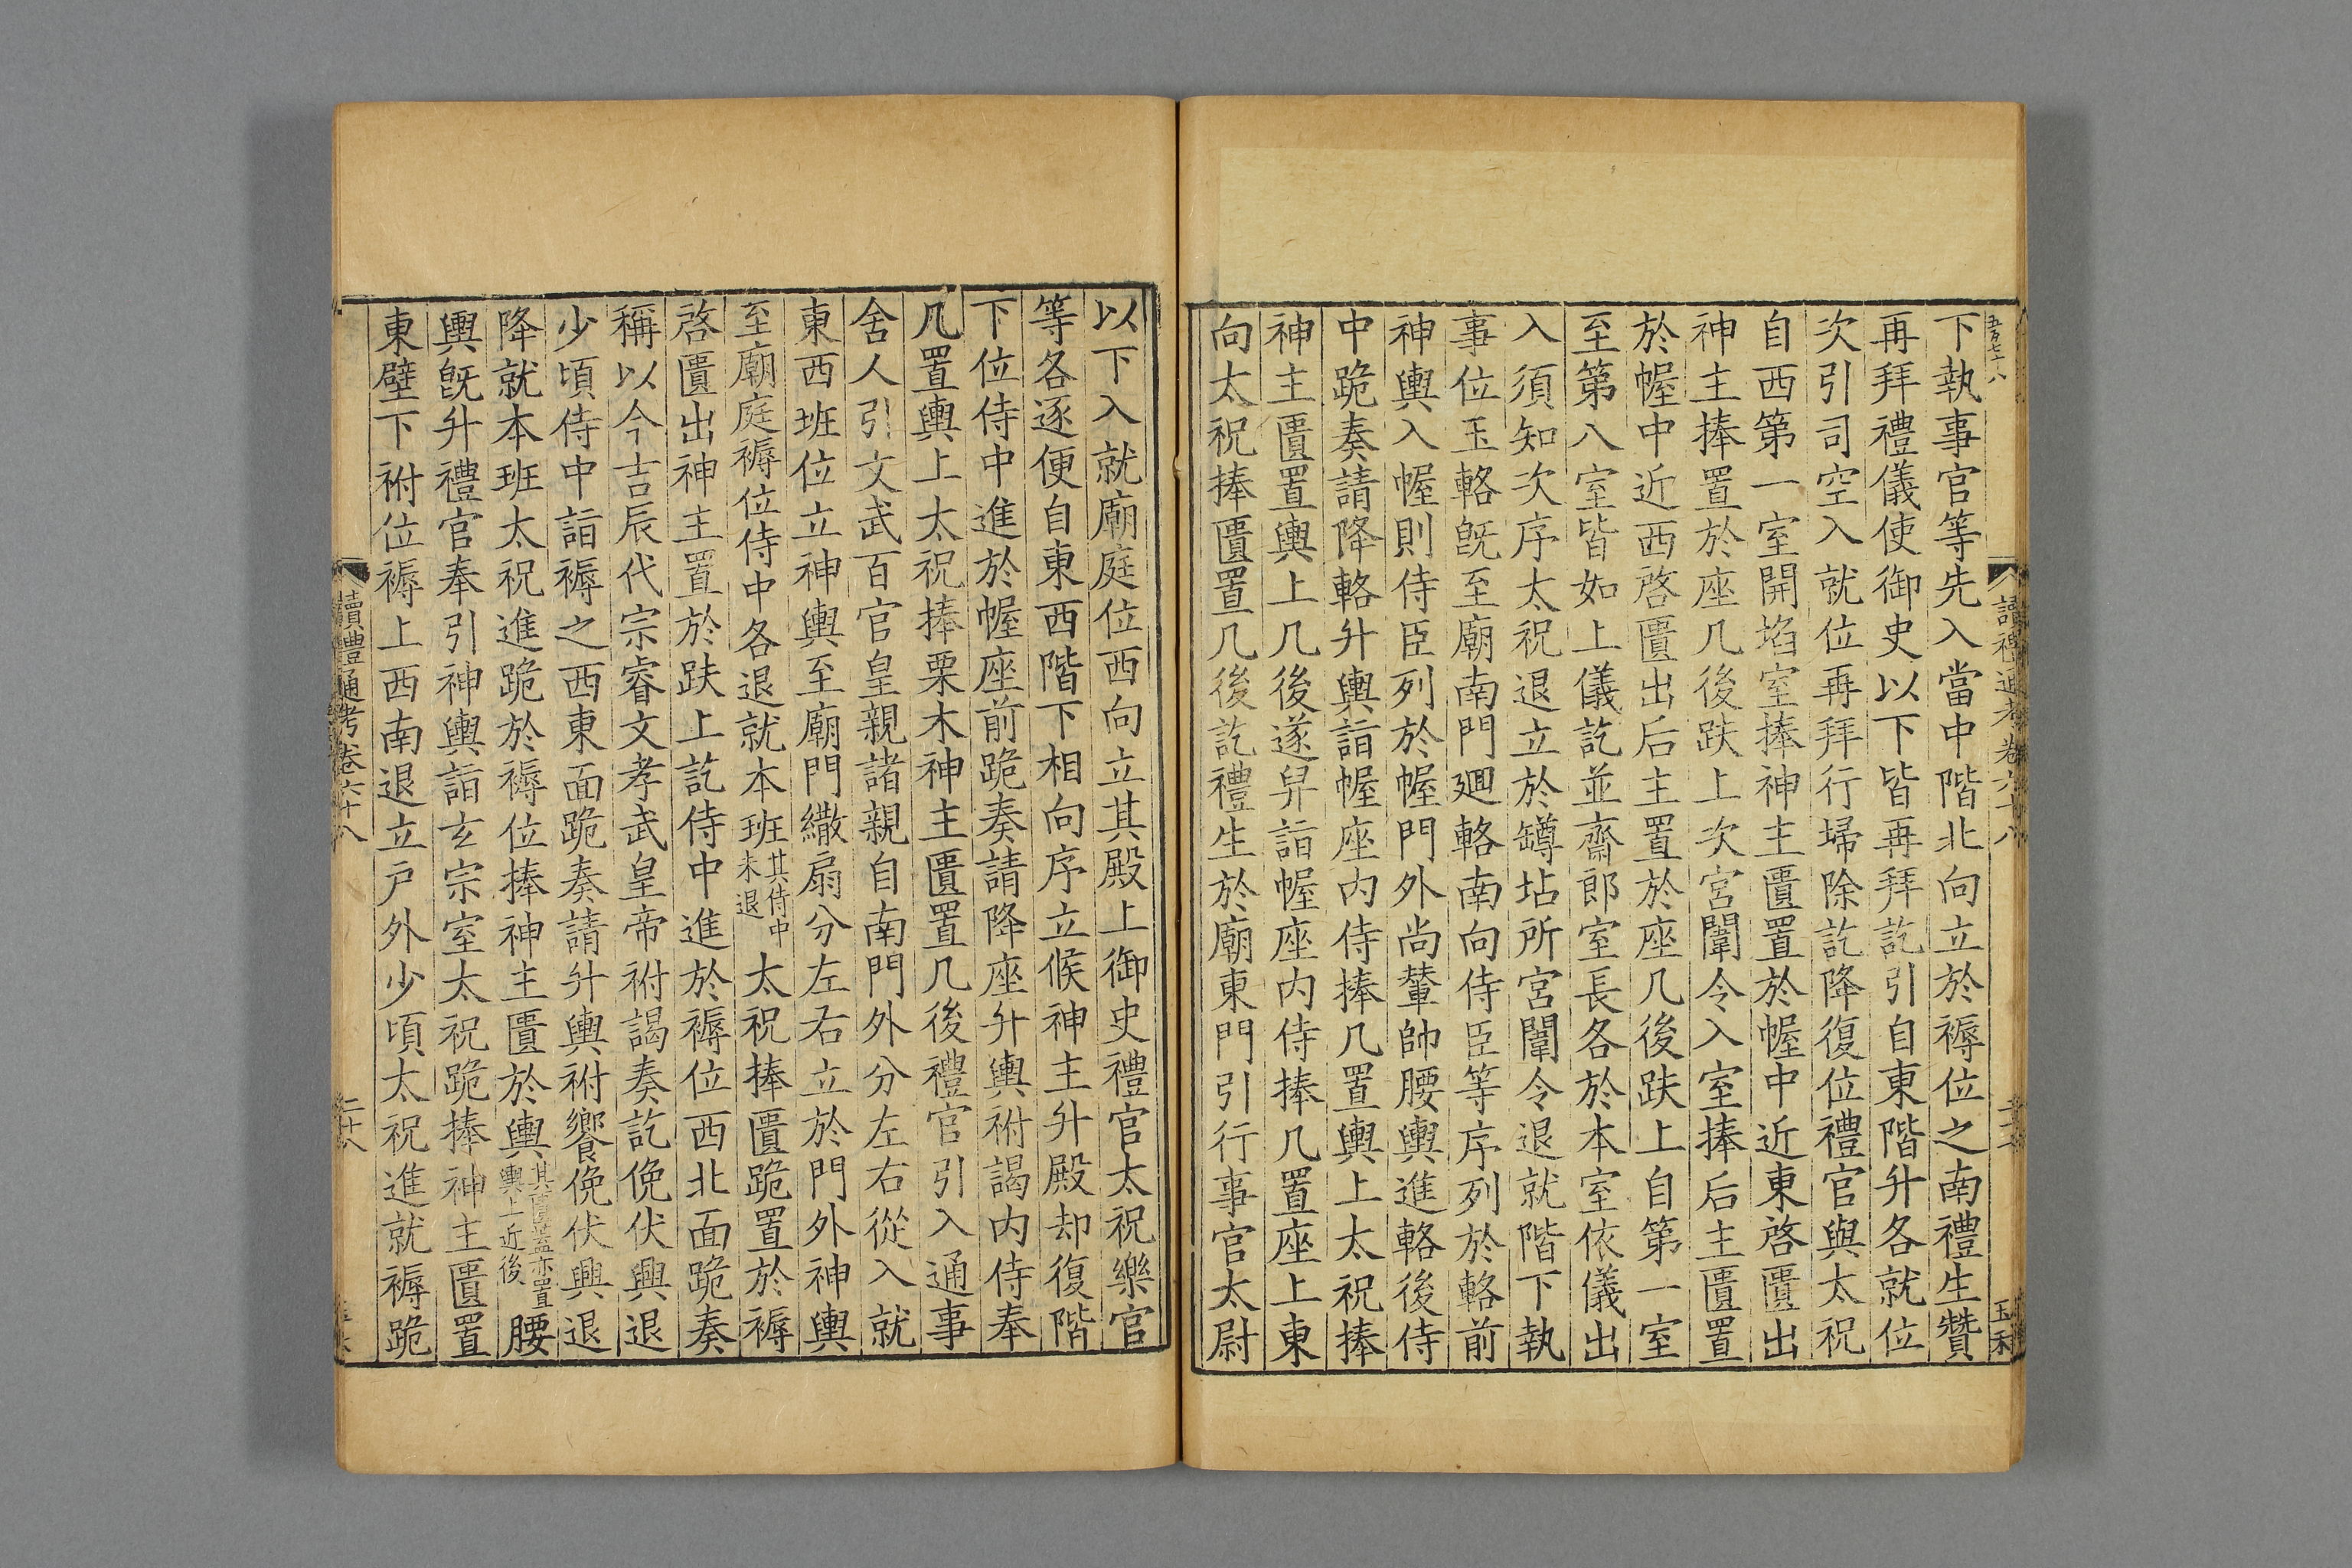 讀禮通考卷六十八
下執事官等先入當中階北向立於褥位之南禮生贊
再拜禮儀使御史以下皆再拜訖引自東階升各就位
次引司空入就位再拜行埽除訖降復位禮官與太祝
自西第一室開埳室捧神主匱置於幄中近東啓匱出
神主捧置於座几後趺上次宮闈令入室捧后主匱置
於幄中近西啓匱出后主置於座几後趺上自第一室
至第八室皆如上儀訖並齋郎室長各於本室依儀出
入須知次序太祝退立於罇坫所宮闈令退就階下執
事位玉輅旣至廟南門廻輅南向侍臣等序列於輅前
神輿入幄則侍臣列於幄門外尚輦帥腰輿進輅後侍
中跪奏請降輅升輿詣幄座內侍捧几置輿上太祝捧
神主匱置輿上几後遂舁詣幄座內侍捧几置座上東
向太祝捧匱置几後訖禮生於廟東門引行事官太尉
以下入就廟庭位西向立其殿上御史禮官太祝樂官
等各逐便自東西階下相向序立候神主升殿却復階
下位侍中進於幄座前跪奏請降座升輿祔謁內侍奉
几置輿上太祝捧栗木神主匱置几後禮官引入通事
舍人引文武百官皇親諸親自南門外分左右從入就
東西班位立神輿至廟門繖扇分左右立於門外神輿
至廟庭褥位侍中各退就本班其侍中未退太祝捧匱跪置於褥
啓匱出神主置於趺上訖侍中進於褥位西北面跪奏
稱以今吉辰代宗睿文孝武皇帝祔謁奏訖俛伏興退
少頃侍中詣褥之西東面跪奏請升輿祔饗俛伏興退
降就本班太祝進跪於褥位捧神主匱於輿其匱蓋亦置輿上近後腰
輿旣升禮官奉引神輿詣玄宗室太祝跪捧神主匱置
東壁下祔位褥上西南退立戶外少頃太祝進就褥跪
讀禮通考卷六十八
二十八